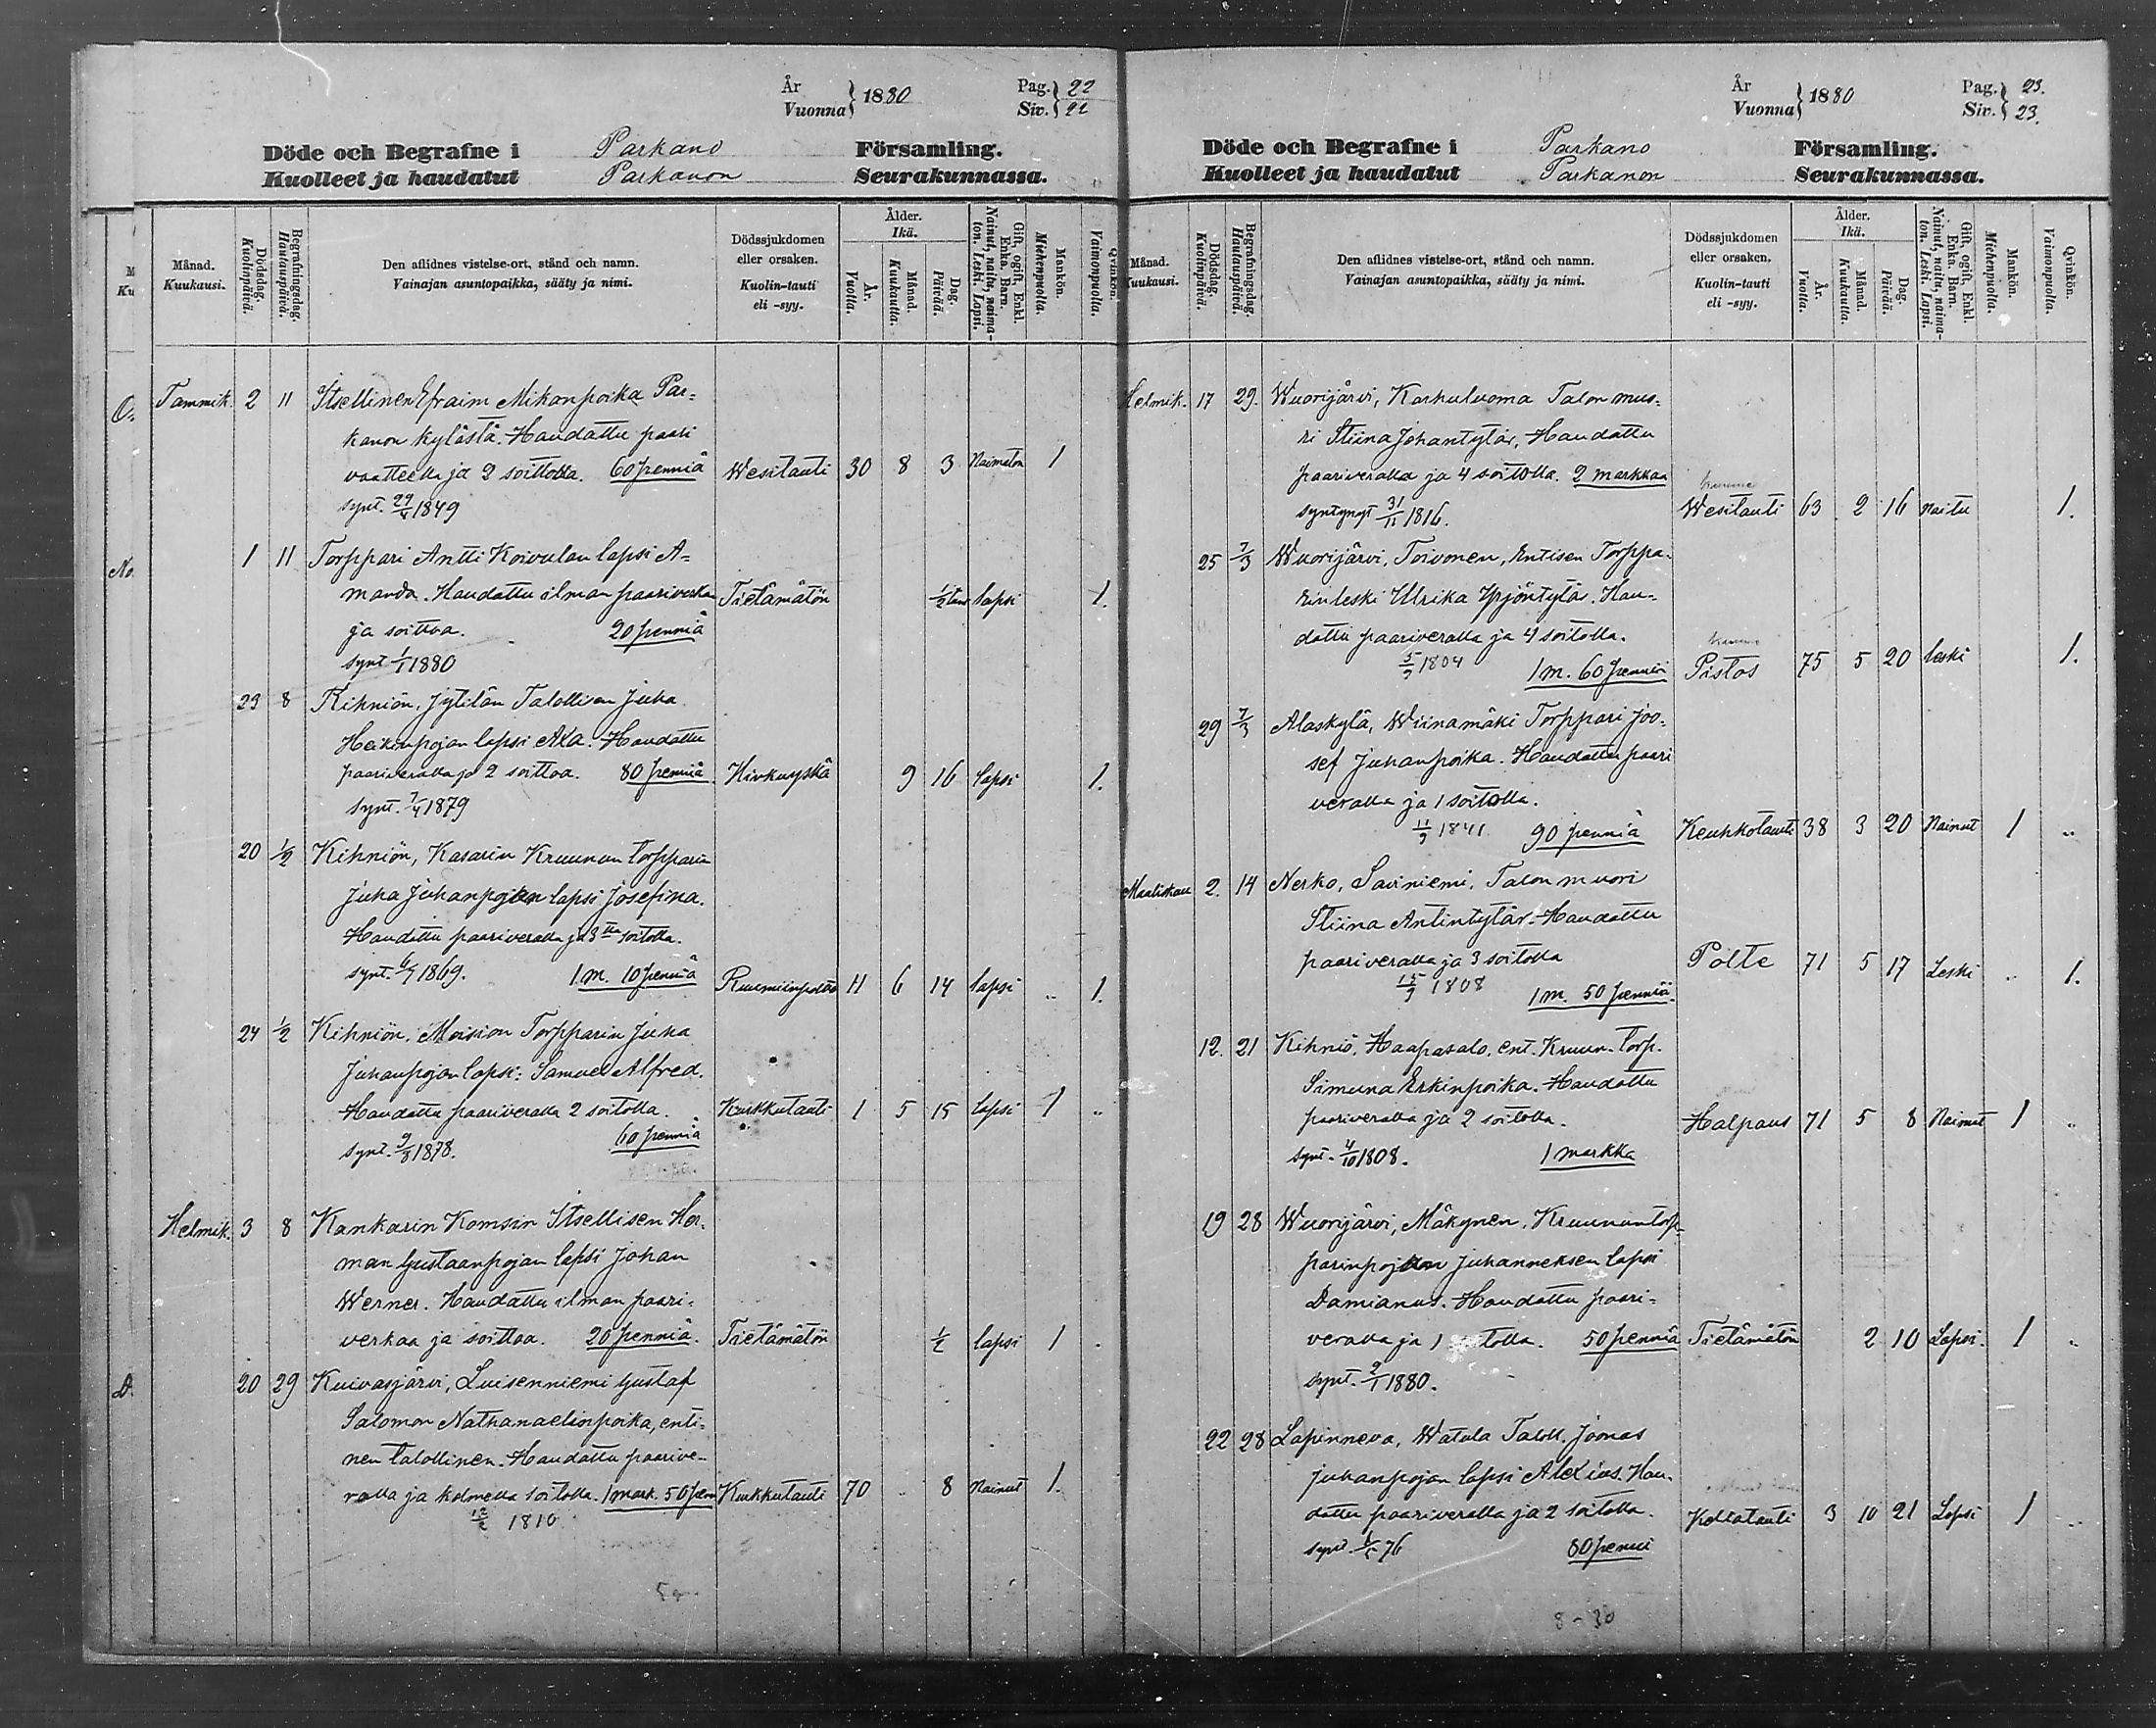 År
Vuonna } 1880
Pag. } 22
Siv. } 22
Döde och Begrafne i Parkano Församling.
Kuolleet ja haudatut Parkanon Seurakunnassa.
Månad. Kuukausi.
Dödsdag. Kuolinpäivä.
Begrafningsdag. Hautauspäivä.
Den aflidnes vistelse-ort, stånd och namn.
Vainajan asuntopaikka, sääty ja nimi.
Dödssjukdomen eller orsaken.
Kuolin-tauti eli -syy.
Ålder. Ikä.
År. Vuotta.
Månad. Kuukautta.
Dag. Päivää.
Gift, ogift, Enkl. Enka. Barn.
Nainut, naitu, naimaton. Leski. Lapsi.
Mankön. Miehenpuolta.
Qvinkön. Vaimonpuolta.
Tammik. 2 11 Itsellinen Efraim Mikonpoika Par=
kanon kylästä. Haudattu paari
vaatteella ja 2 soitolla. 60 penniä Wesitauti 30 8 3 Naimaton 1
synt. 29/4 1849
1 11 Torppari Antti Koivulan lapsi A=
manda. Haudattu ilman paariverkaa Tietämätön 1/2 lapsi 1.
ja soittoa. 20 penniä
synt 1/1 1880
23 8 Kihniön, Jytilän Talollisen Juha
Heikinpojan lapsi Ala. Haudattu
paariveralla ja 2 soittoa. 80 penniä Hinkuyskä 9 16 lapsi 1.
synt. 7/4 1879
20 1/2 Kihniön, Kasarin Kruunun torpparin
Juha Juhanpojan lapsi Josefina.
Haudattu paariveralla ja 3lla soitolla.
synt. 6/7 1869. 1 m. 10 penniä 11 6 14 lapsi 1.
24 1/2 Kihniön, Moision Torpparin Juha
Juhanpojan lapsi: Samuel Alfred.
Haudattu paariveralla 2 soitolla. Kurkkutauti 1 5 15 lapsi 1
synt. 9/8 1878. 60 penniä
Helmik. 3 8 Kankarin Komsin Itsellisen Her=
man Gustaanpojan lapsi Johan
Werner. Haudattu ilman paari=
verkaa ja soittoa. 20 penniä. Tietämätön 1/2 lapsi 1
20 29 Kuivasjärvi, Luisenniemi Gustaf
Salomon Nathanaelinpoika, enti=
nen talollinen. Haudattu paarive=
ralla ja kolmella soitolla. 1 mark. 50 pen Kurkkutauti 70 8 Nainut 1.
12/2 1810
År
Vuonna } 1880
Pag. } 23.
Siv. } 23.
Döde och Begrafne i Parkano Församling.
Kuolleet ja haudatut Parkanon Seurakunnassa.
Månad. Kuukausi.
Dödsdag. Kuolinpäivä.
Begrafningsdag. Hautauspäivä.
Den aflidnes vistelse-ort, stånd och namn.
Vainajan asuntopaikka, sääty ja nimi.
Dödssjukdomen eller orsaken.
Kuolin-tauti eli -syy.
Ålder. Ikä.
År. Vuotta.
Månad. Kuukautta.
Dag. Päivää.
Gift, ogift, Enkl. Enka. Barn.
Nainut, naitu, naimaton. Leski. Lapsi.
Mankön. Miehenpuolta.
Qvinkön. Vaimonpuolta.
Helmik. 17 29. Wuorijärvi, Karhuluoma Talon muo=
ri Stiina Johantytär, Haudattu
paariveralla ja 4 soitolla. 2 markkaa
syntynyt 31/11 1816. Wesitauti 63 2 16 Naitu 1.
25 7/3 Wuorijärvi, Toivonen, Entisen Torppa=
rin leski Ulrika Yrjöntytär. Hau=
dattu paariveralla ja 4 soitolla.
5/9 1804 1 m. 60 penniä Pistos 75 5 20 leski 1.
29 7/3 Alaskylä, Wiinamäki Torppari Joo=
sef Juhanpoika. Haudattu paari
veralla ja 1 soitolla.
11/9 1841 90 penniä Keuhkotauti 38 3 20 Nainut 1
Maaliskuu 2. 14 Nerko, Saviniemi, Talon muori
Stiina Antintytär. Haudattu
paariveralla ja 3 soitolla Polte 71 5 17 Leski 1.
15/9 1808 1 m. 50 penniä.
12. 21 Kihniö, Haapasalo, ent. Kruun. torp.
Simuna Erkinpoika. Haudattu
paariveralla ja 2 soitolla. Halpaus 71 5 8 Nainut 1
synt. 4/10 1808. 1 markka
19 28 Wuorijärvi, Mäkynen, Kruunun torp=
parinpojan Juhanneksen lapsi
Damianus. Haudattu paari=
veralla ja 1 tolla. 50 penniä Tietämätön 2 10 Lapsi. 1
synt. 9/1 1880.
22 28 Lapinneva, Watula Taloll. Joonas
Juhanpojan lapsi Alexius. Hau=
dattu paariveralla ja 2 soitolla. 3 10 21 Lapsi 1
synt 1/5 76 80 penni
8-30